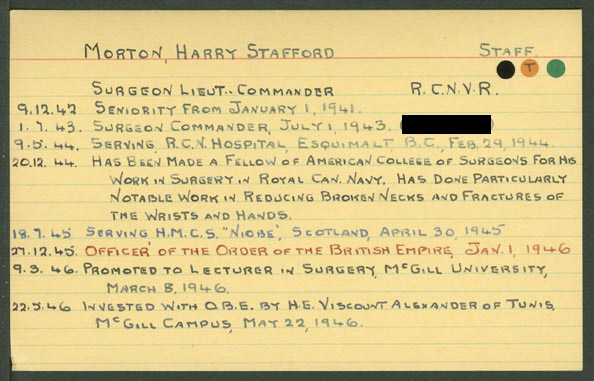 MORTON, HARRY STAFFORD STAFF.
T
SURGEON LIEUT.-COMMANDER R.C.N.V.R.
9.12.42 SENIORITY FROM JANUARY 1, 1941.
1.7.43. SURGEON COMMANDER, JULY 1, 1943.
9.5.44. SERVING, R.C.N. HOSPITAL, ESQUIMALT, B.C., FEB. 29, 1944.
20.12.44. HAS BEEN MADE A FELLOW OF AMERICAN COLLEGE OF SURGEONS FOR HIS
WORK IN SURGERY IN ROYAL CAN. NAVY. HAS DONE PARTICULARLY
NOTABLE WORK IN REDUCING BROKEN NECKS AND FRACTURES OF
THE WRISTS AND HANDS.
18.7.45 SERVING H.M.C.S. "NIOBE", SCOTLAND, APRIL 30, 1945
27.12.45. OFFICER OF THE ORDER OF THE BRITISH EMPIRE, JAN. 1, 1946
9.3.46. PROMOTED TO LECTURER IN SURGERY, MCGILL UNIVERSITY,
MARCH 8, 1946.
22.5.46 INVESTED WITH O.B.E. BY H.E. VISCOUNT ALEXANDER OF TUNIS,
MCGILL CAMPUS, MAY 22, 1946.